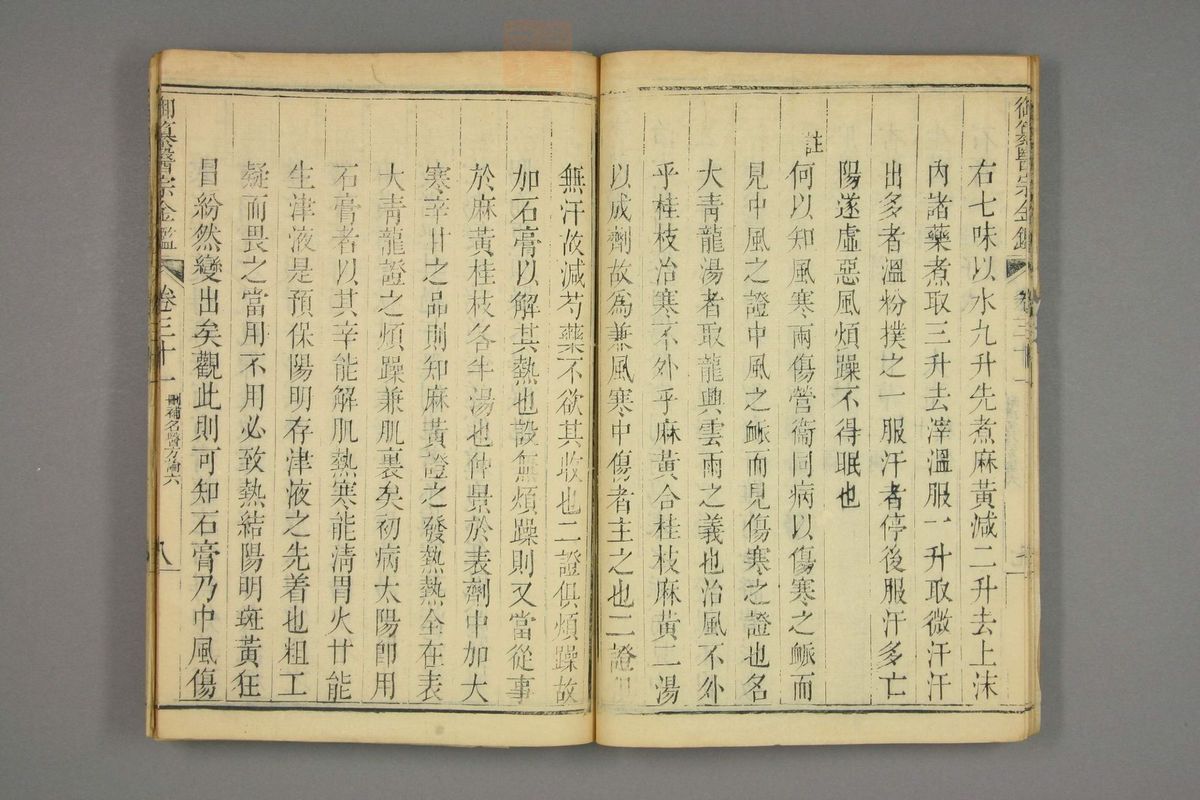 御纂醫宗金鑑 卷三十
右七味以水九升先煮麻黃減二升去上沫
內諸藥煮取三升去滓溫服一升取微汗汗
出多者溫粉撲之一服汗者停後服汗多亡
陽遂虛惡風煩躁不得眠也
註
何以知風寒兩傷營衞同病以傷寒之脈而
見中風之證中風之脈而見傷寒之證也名
大青龍湯者取龍興雲雨之義也治風不外
乎桂枝治寒不外乎麻黃合桂枝麻黃二湯
以成劑故為兼風寒中傷者主之也二證
無汗故減芍藥不欲其收也二證俱煩躁故
加石膏以解其熱也設無煩躁則又當從事
於麻黃桂枝各半湯也仲景於表劑中加大
寒辛甘之品則知麻黃證之發熱熱全在表
大青龍證之煩躁兼肌裏矣初病太陽卽用
石膏者以其辛能解肌熱寒能清胃火甘能
生津液是預保陽明存津液之先着也粗工
疑而畏之當用不用必致熱結陽明斑黃狂
冒紛然變出矣觀此則可知石膏乃中風傷
御纂醫宗金鑑 卷三十一 刪補名醫方論六 八